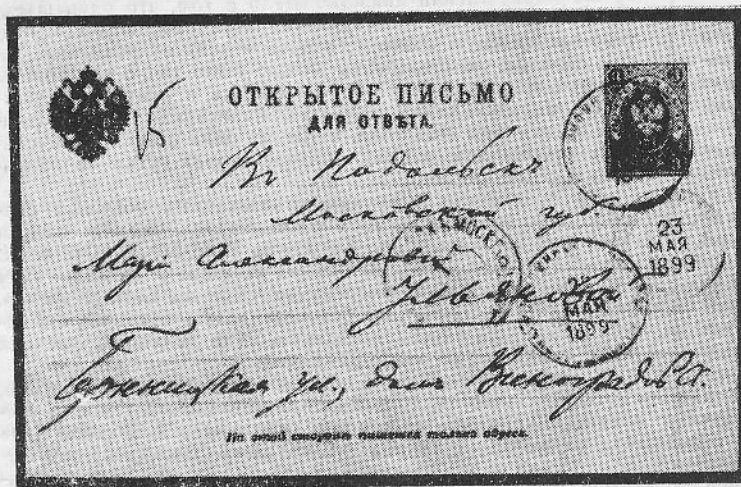 ОТКРЫТОЕ ПИСЬМО
ДЛЯ ОТВѢТА.
Въ Подольскъ
Московской губ.
Маріи Александровнѣ
Ульяновой
ул., домъ Виноградова.
МОСКВА
23
МАЯ
1899
МАЯ
1899
На этой сторонѣ пишется только адресъ.